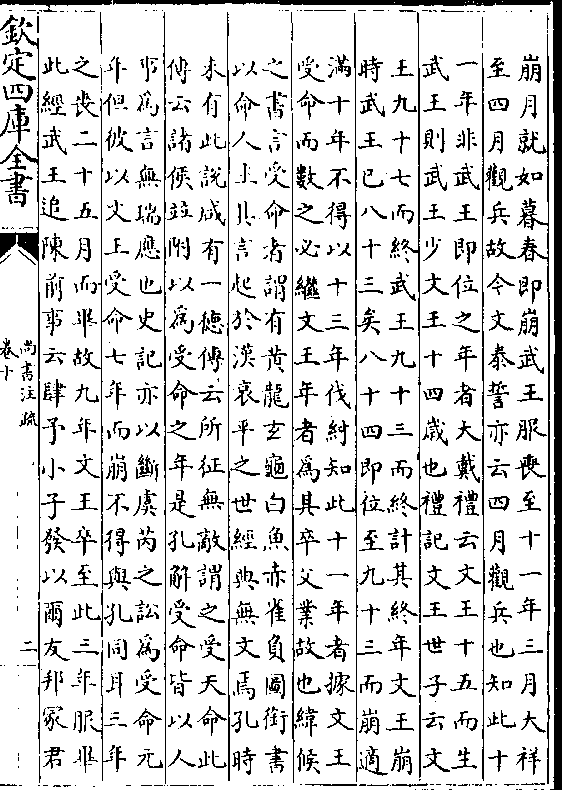 崩月就如暮春即崩武王服喪至十一年三月大祥
至四月觀兵故今文泰誓亦云四月觀兵也知此十
一年非武王即位之年者大戴禮云文王十五而生
武王則武王少文王十四歲也禮記文王世子云文
王九十七而終武王九十三而終計其終年文王崩
時武王已八十三矣八十四即位至九十三而崩適
滿十年不得以十三年伐紂知此十一年者據文王
受命而數之必繼文王年者為其卒父業故也緯候
之書言受命者謂有黄龍玄龜白魚赤雀負圖銜書
以命人主其言起於漢哀平之世經典無文焉孔時
未有此説咸有一徳傳云所征無敵謂之受天命此
傳云諸侯並附以為受命之年是孔解受命皆以人
事為言無瑞應也史記亦以斷虞芮之訟為受命元
年但彼以文王受命七年而崩不得與孔同耳三年
之喪二十五月而畢故九年文王卒至此三年服畢
此經武王追陳前事云肆予小子發以爾友邦冢君
欽定四庫全書
尚書注疏
卷十
二